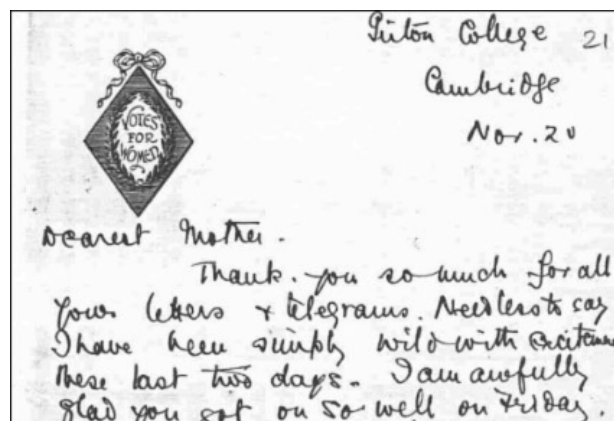 Girton College 21
Cambridge
Nov. 20
VOTES
FOR
WOMEN
Dearest Mother.
Thank you so much for all
your letters + telegrams. Needless to say
I have been simply wild with excitement
these last two days. I am awfully
glad you got on so well on Friday.